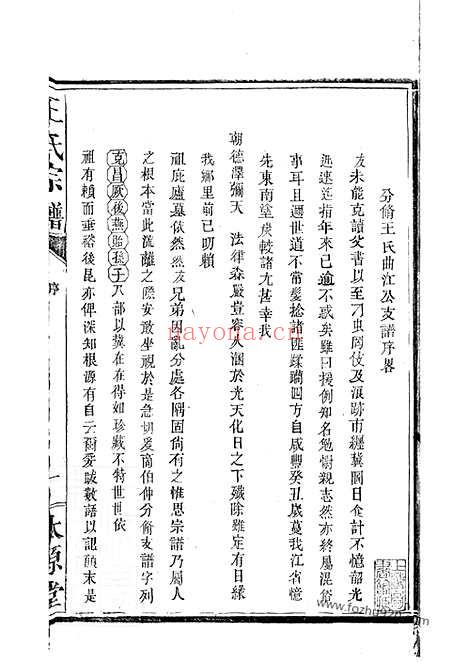 分脩王氏曲江公支譜序畧
友未能克讀父書以至刁虫罔伎及浪跡市纏冀圖日食計不憶韶光
迅速迄指年來已逾不惑矣雖曰援例知名勉尉親志然亦終屬混俗
事耳且遇世道不常髮捻諸匪蹂躪四方自咸豐癸丑歲蔓我江省憶
先東南塗炭較諸尤甚幸我
朝德澤彌天 法律森嚴豈容久溷於光天化日之下殲除雖定有日緣
我鄉里前已叨賴
祖庇廬墓依然然友兄弟因亂分處各隅固尙有之惟思宗譜乃屬人
之根本當此流離之際安敢坐視於是急切爰商伯仲分脩支譜字列
克昌厥後燕貽孫子八部以冀在在得如珍藏不特世世依
祖有賴而垂裕後昆亦俾深知根源有自云爾爰跋數語以記顛末是
王氏宗譜
序
太原堂
nayona.cn
www.fozhu920.com